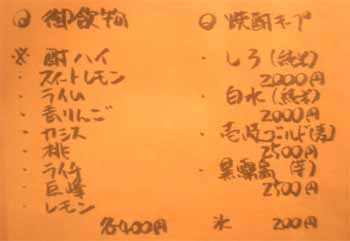 ◎ 御飲物
※ 酎ハイ
・スイートレモン
・ライム
・青りんご
・カシス
・桃
・ライチ
・巨峰
・レモン
各400円
◎ 焼酎キープ
・しろ(純米)
2000円
・白水(純米)
2000円
・壱岐ゴールド(麦)
2500円
・黒霧島(芋)
2500円
氷 200円